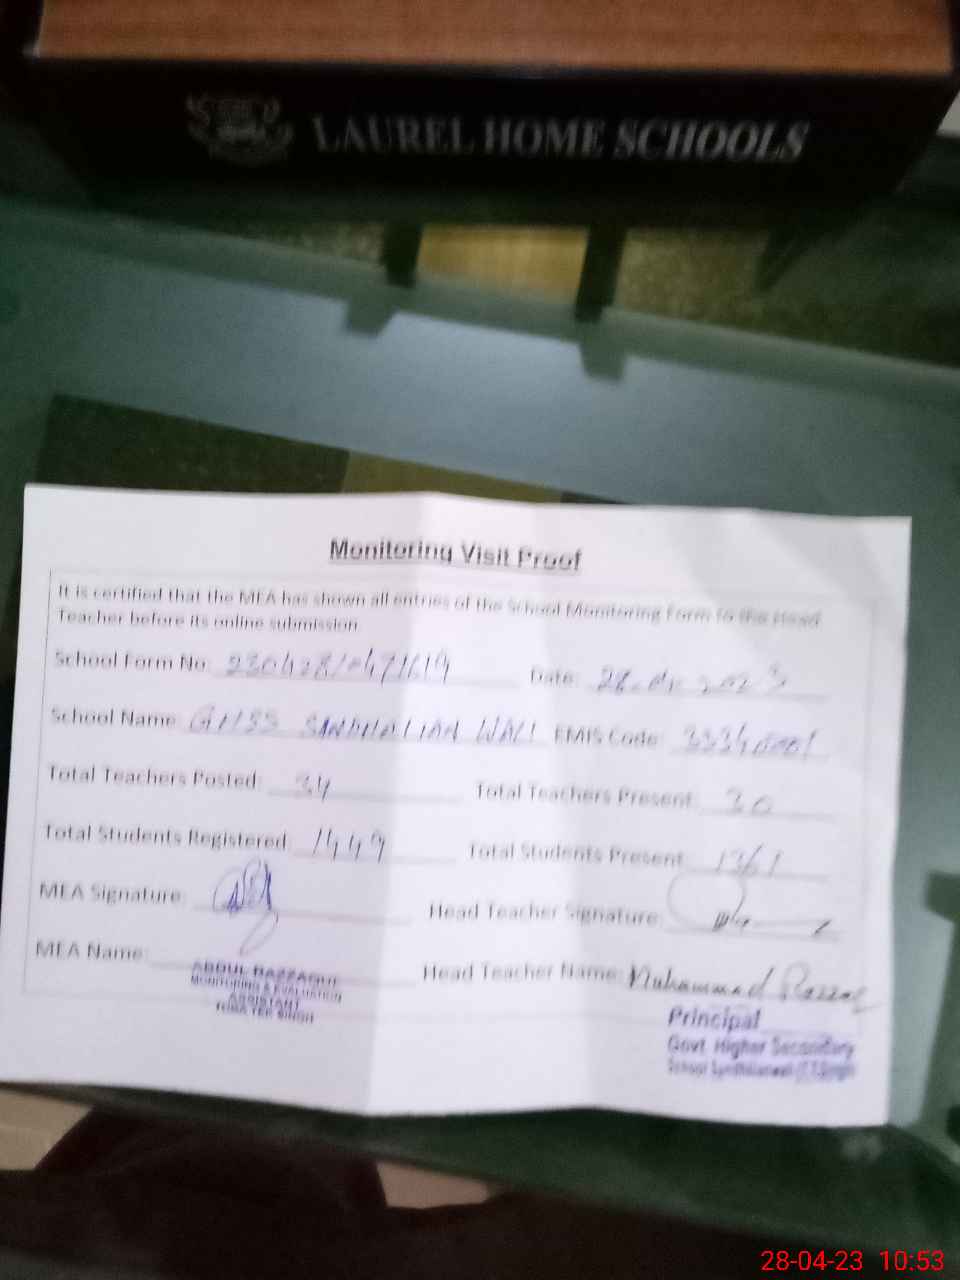 LAUREL HOME SCHOOLS
Monitoring Visit Proof
It is certified that the MEA has shown all entries of the School Monitoring Form to the Head
Teacher before its online submission
School Form No: Date:
School Name: GHSS SANDHALIAN WALI EMIS Code:
Total Teachers Posted: 34 Total Teachers Present: 30
Total Students Registered: 1449 Total Students Present: 1361
MEA Signature: Head Teacher Signature:
MEA Name: Head Teacher Name: Muhammad
ABDUL RAZZAQUE
MONITORING & EVALUATION
ASSISTANT
TOBA TEK SINGH
Principal
Govt. Higher Secondary
School
28-04-23 10:53